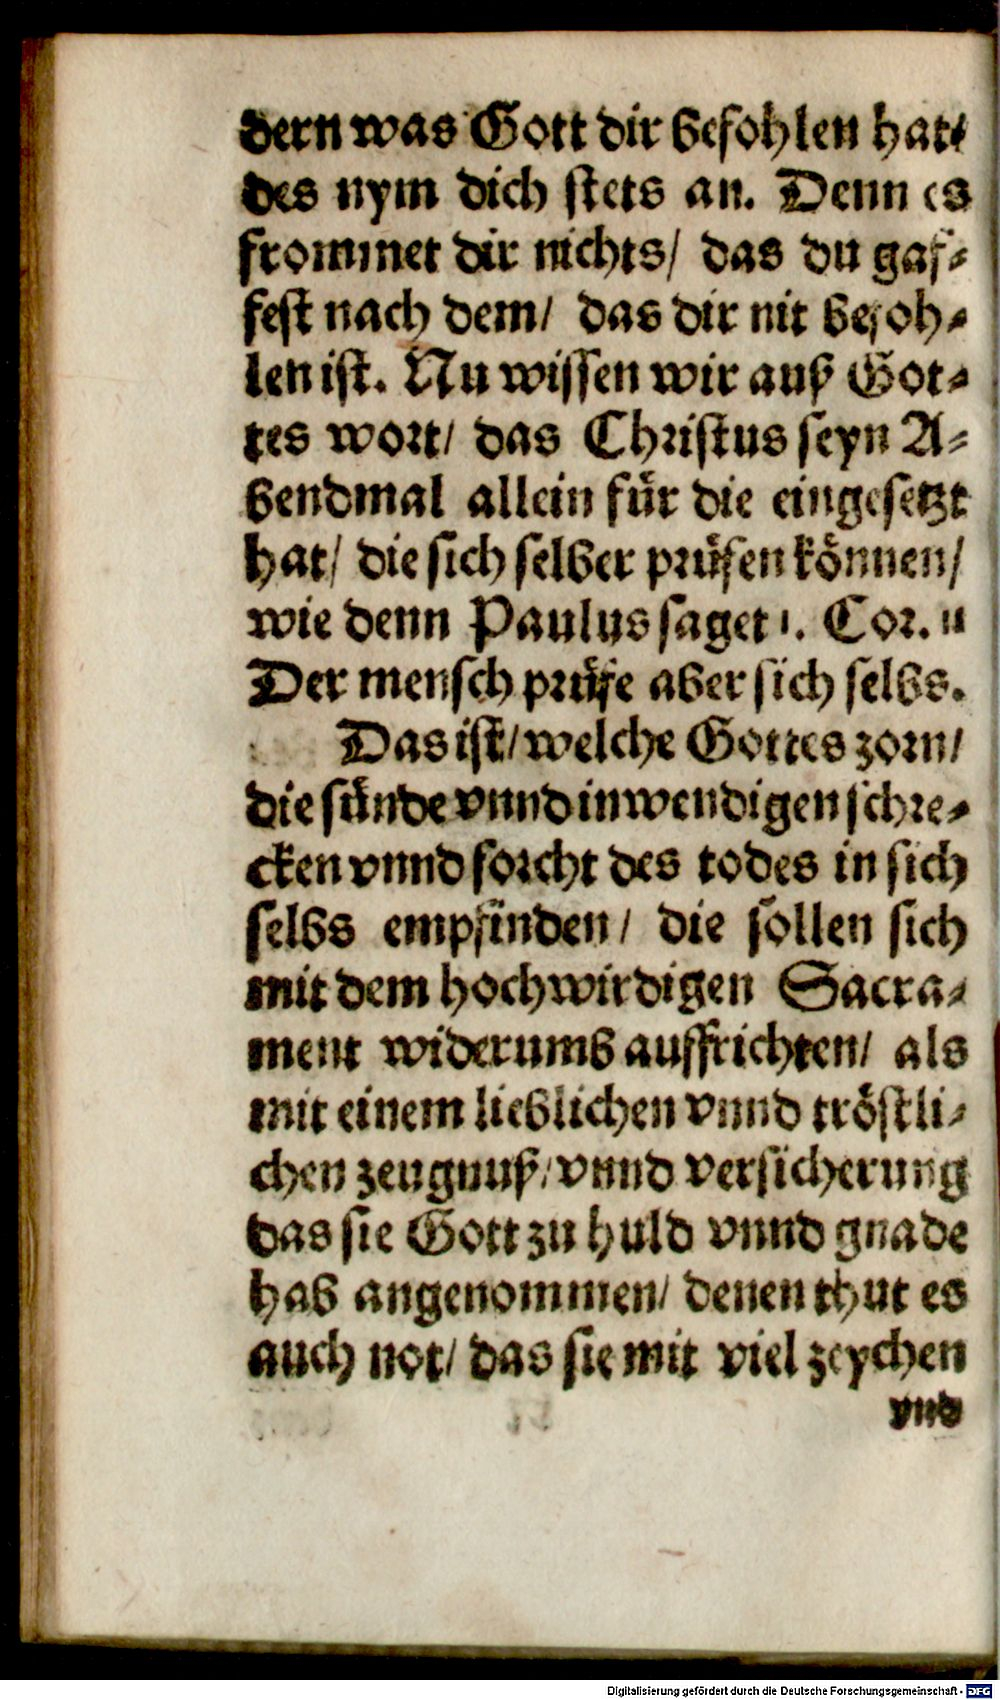 dern was Gott dir befohlen hat/
des nym dich stets an. Denn es
frommet dir nichts/ das du gaf-
fest nach dem/ das dir nit befoh-
len ist. Nu wissen wir auß Got-
tes wort/ das Christus seyn A-
bendmal allein für die eingesetzt
hat/ die sich selber prüfen können/
wie denn Paulus saget 1. Cor. 11
Der mensch prüfe aber sich selbs.
Das ist/ welche Gottes zorn/
die sünde vnnd inwendigen schre-
cken vnnd forcht des todes in sich
selbs empfinden/ die sollen sich
mit dem hochwirdigen Sacra-
ment widerumb auffrichten/ als
mit einem lieblichen vnnd tröstli-
chen zeugnuß/ vnnd versicherung
das sie Gott zu huld vnnd gnade
hab angenommen/ denen thut es
auch not/ das sie mit viel zeychen
vnd
Digitalisierung gefördert durch die Deutsche Forschungsgemeinschaft - DFG